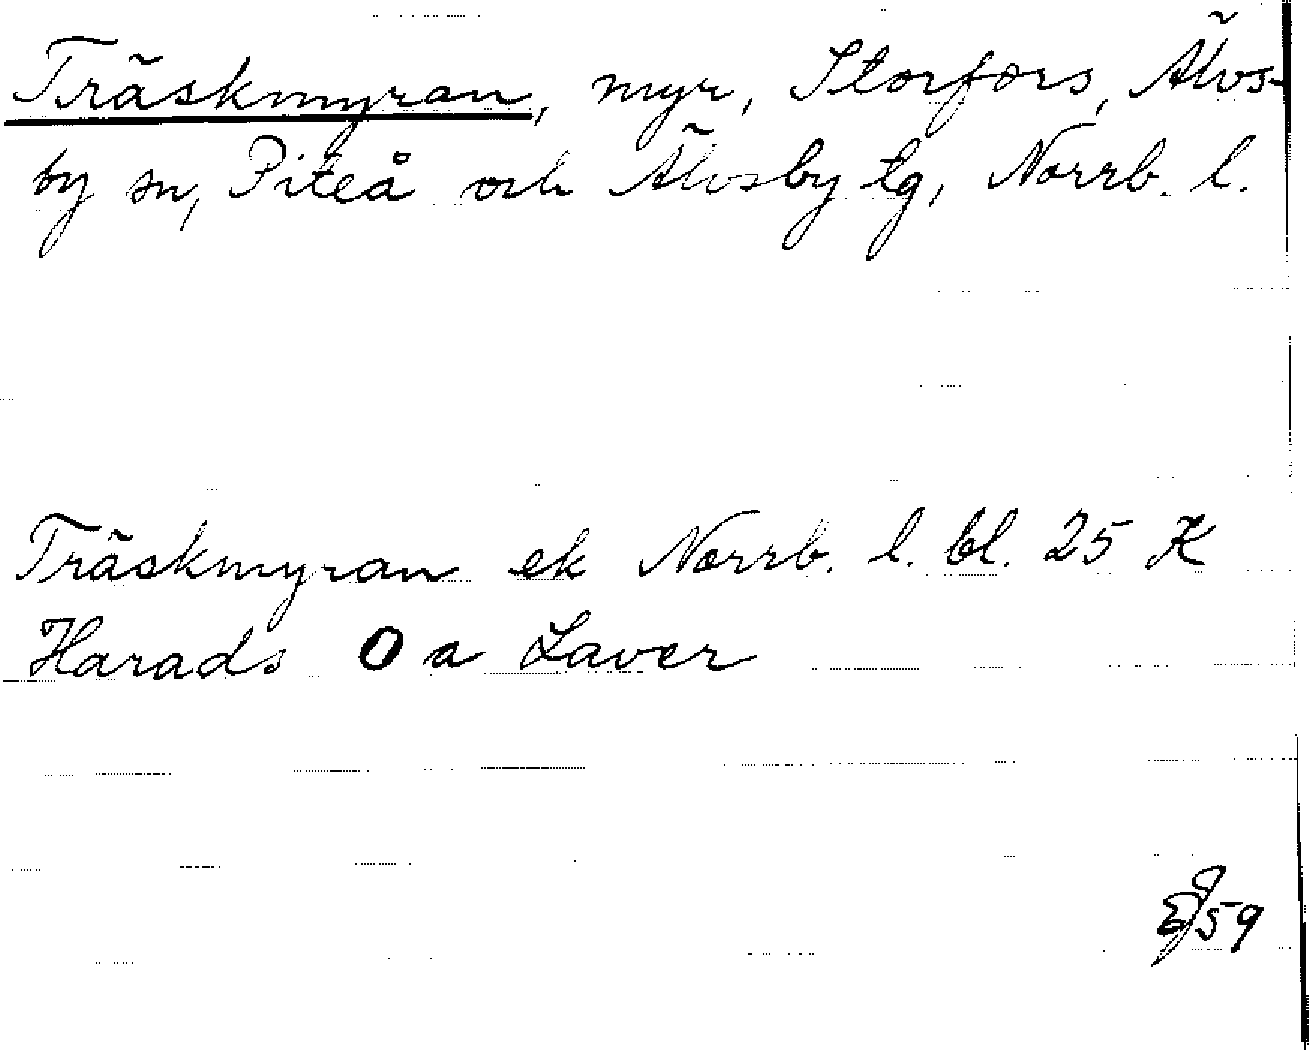 Träskmyran, myr, Storfors, Älvs-
by sn, Piteå och Älvsby tg, Norrb. l.
Träskmyran ek Norrb. l. bl. 25 K
Harads O a Laver
59